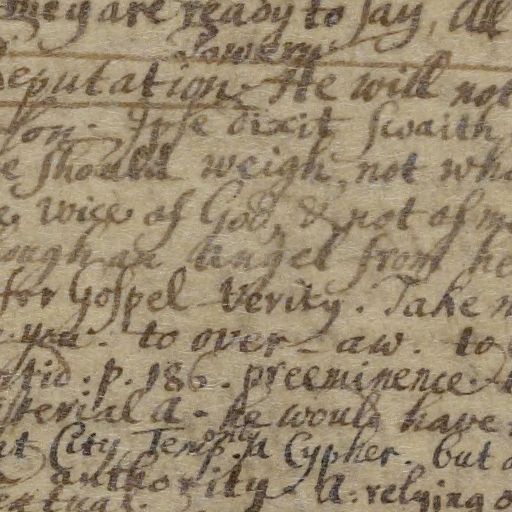 they are ready to say, All
Power
Reputation. He will not
son. Ipse dixit swaith
e should weigh, not wha
e wice of God, & not of m
ough an Angel from he
for Gospel Verity. Take n
you. to over-aw. to
p. 186. preeminence.
sterial A. he would have
at City Temp. a Cypher. but
authority. A: relying o